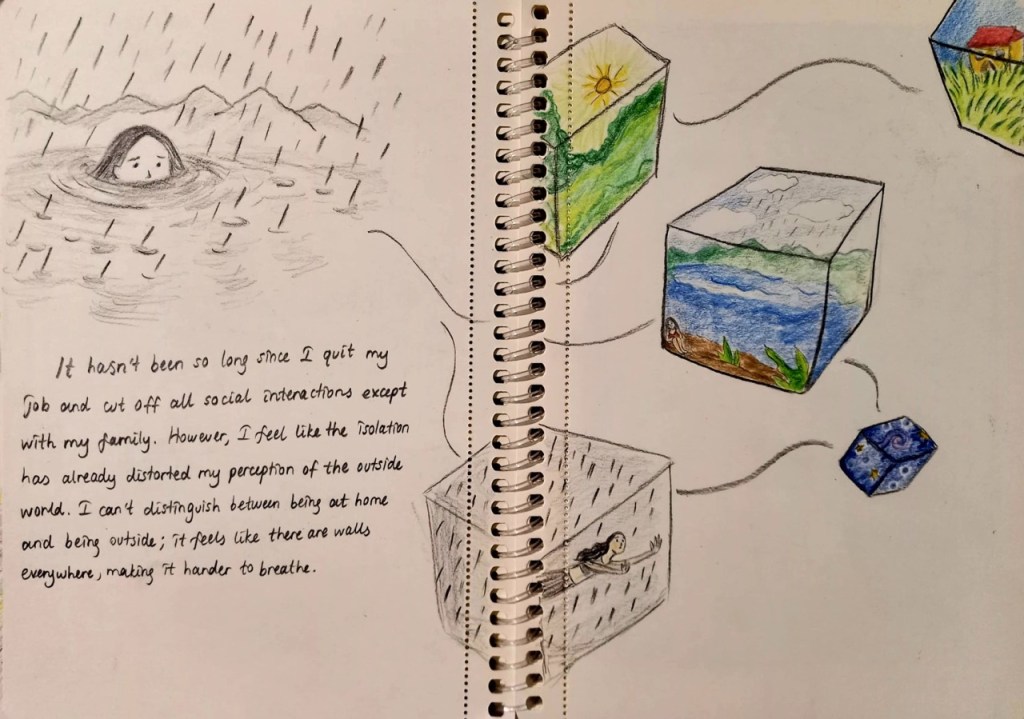 It hasn't been so long since I quit my
job and cut off all social interactions except
with my family. However, I feel like the isolation
has already distorted my perception of the outside
world. I can't distinguish between being at home
and being outside; it feels like there are walls
everywhere, making it harder to breathe.